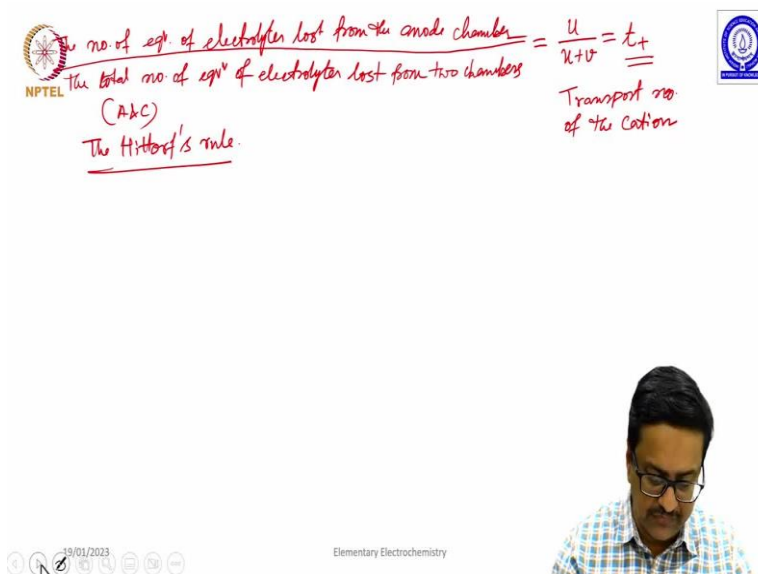 The no. of eqv. of electrolytes lost from the anode chamber = u/u+v = t+
The total no. of eqv of electrolytes lost from two chambers
(A&C)
Transport no.
of the Cation
The Hittorf's rule.
NPTEL
IN PURSUIT OF KNOWLEDGE
19/01/2023
Elementary Electrochemistry